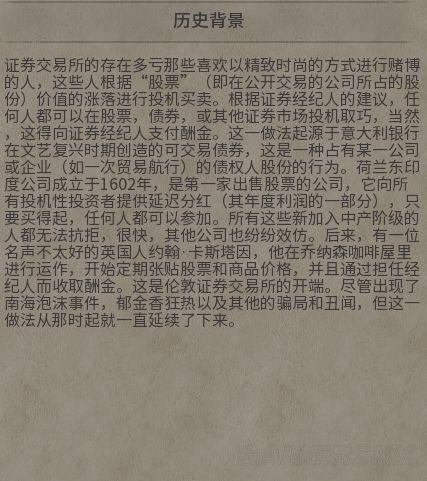 历史背景
证券交易所的存在多亏那些喜欢以精致时尚的方式进行赌博
的人，这些人根据“股票”（即在公开交易的公司所占的股
份）价值的涨落进行投机买卖。根据证券经纪人的建议，任
何人都可以在股票，债券，或其他证券市场投机取巧，当然
，这得向证券经纪人支付酬金。这一做法起源于意大利银行
在文艺复兴时期创造的可交易债券，这是一种占有某一公司
或企业（如一次贸易航行）的债权人股份的行为。荷兰东印
度公司成立于1602年，是第一家出售股票的公司，它向所
有投机性投资者提供延迟分红（其年度利润的一部分），只
要买得起，任何人都可以参加。所有这些新加入中产阶级的
人都无法抗拒，很快，其他公司也纷纷效仿。后来，有一位
名声不太好的英国人约翰·卡斯塔因，他在乔纳森咖啡屋里
进行运作，开始定期张贴股票和商品价格，并且通过担任经
纪人而收取酬金。这是伦敦证券交易所的开端。尽管出现了
南海泡沫事件，郁金香狂热以及其他的骗局和丑闻，但这一
做法从那时起就一直延续了下来。